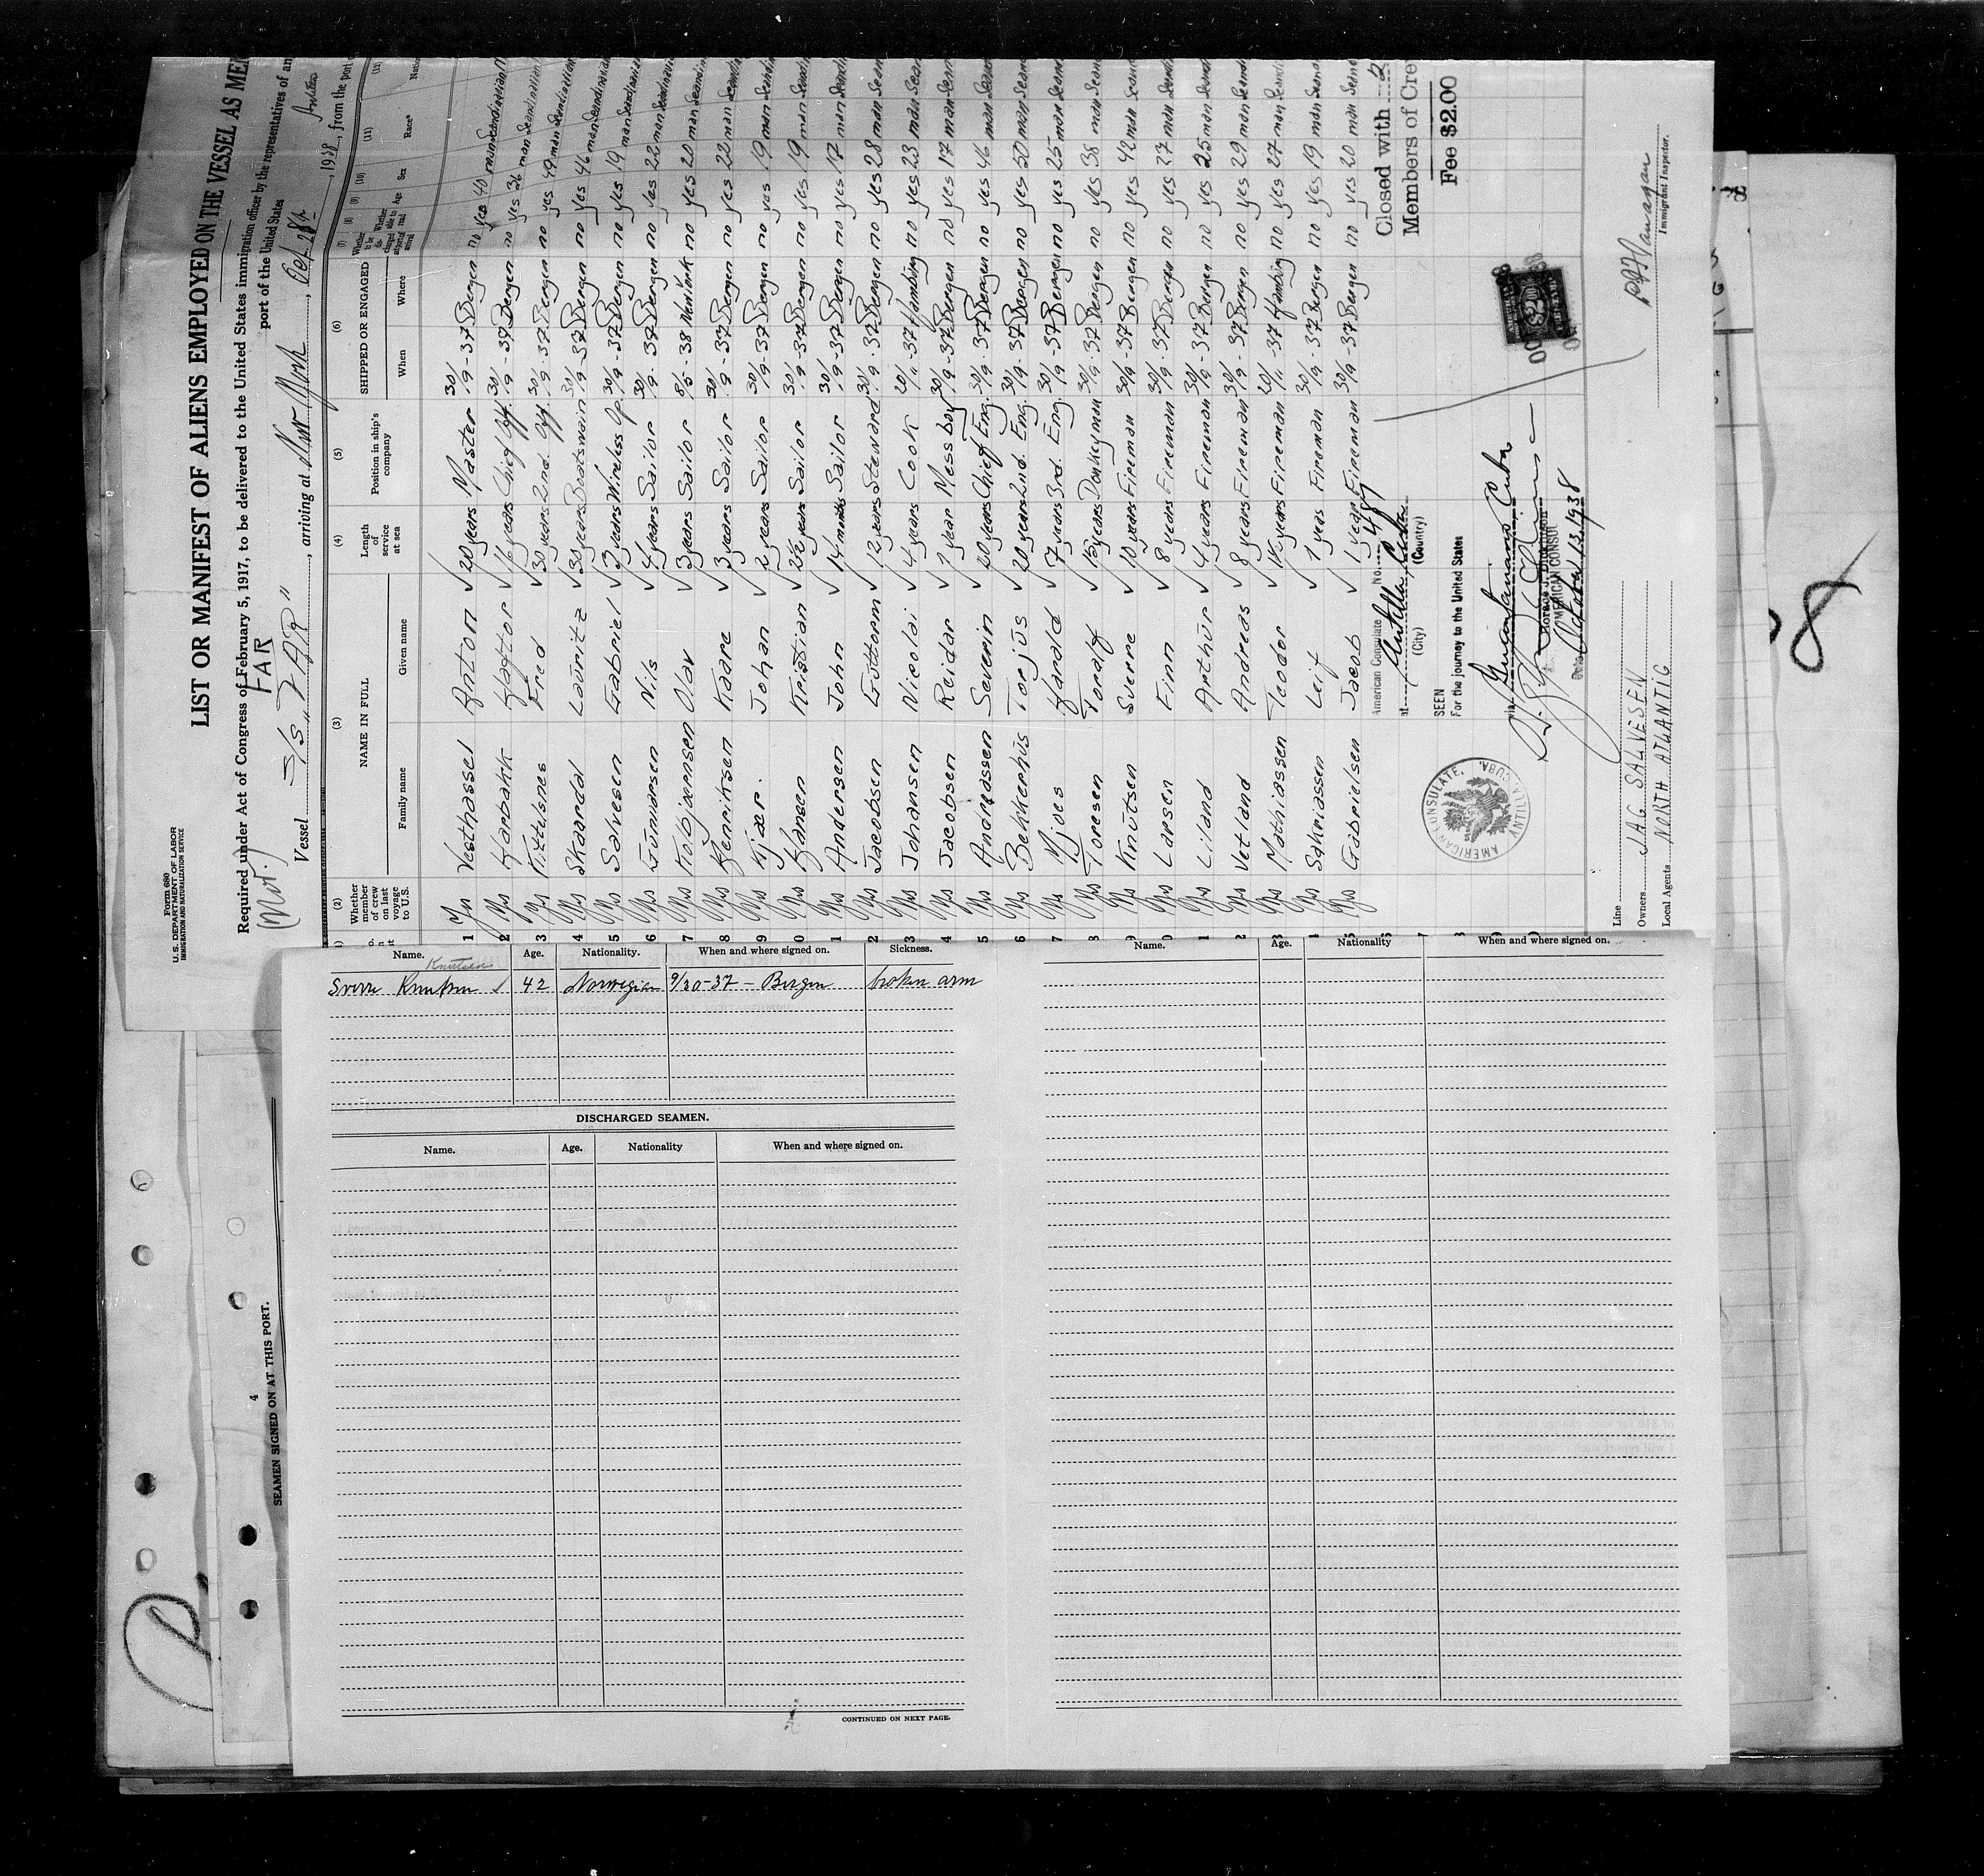 Form 680
U. S. DEPARTMENT OF LABOR
IMMIGRATION AND NATURALIZATION SERVICE
LIST OR MANIFEST OF ALIENS EMPLOYED ON THE VESSEL AS MEM
Required under Act of Congress of February 5, 1917, to be delivered to the United States immigration officer by the representatives of an
port of the United States
(Mot.) FAR
Vessel S/S "FAR", arriving at New York, Oct 28th, 1938, from the port
(2) (3) (4) (5) (6) (7) (8) (9) (10) (11) (12)
Whether member of crew on last voyage to U.S. NAME IN FULL Length of service at sea Position in ship's company SHIPPED OR ENGAGED Age Sex Race*
Family name Given name When Where
1 Yes Vesthassel Anton 20 years Master 30/9-37 Bergen no yes 40 man Scandinavian
2 Yes 16 years Chief Off 30/9-37 Bergen no yes 36 man Scandinavian
3 Yes Kittelsnes Fred 30 years 2nd. Off 30/9-37 Bergen no yes 49 man Scandinavian
4 Yes Skaardal Lauritz 30 years Boatswain 30/9-37 Bergen no yes 46 man Scandinavian
5 Yes Salvesen Gabriel 3 years Wireless Op. 30/9-37 Bergen no yes 19 man Scandinavian
6 Yes Gunnarsen Nils 4 years Sailor 30/9-37 Bergen no yes 22 man Scandinavian
7 Yes Kolbjørnsen Olav 3 years Sailor 8/5-38 New York no yes 20 man Scandin
8 Yes Henriksen Kaare 3 years Sailor 30/9-37 Bergen no yes 22 man Scandin
9 Yes Kjær Johan 2 years Sailor 30/9-37 Bergen no yes 19 man Scandin
0 Yes Hansen Kristian 2½ years Sailor 30/9-37 Bergen no yes 19 man Scandin
1 Yes Andersen John 14 months Sailor 30/9-37 Bergen no yes 17 man Scandi
2 Yes Jacobsen Guttorm 12 years Steward 30/9-37 Bergen no yes 28 man Scan
3 Yes Johansen Nicolai 4 years Cook 20/11-37 Hamburg no yes 23 man Scan
4 Yes Jacobsen Reidar 1 year Mess boy 30/9-37 Bergen no yes 17 man Scan
5 Yes Andreassen Severin 20 years Chief Eng. 30/9-37 Bergen no yes 46 man Scan
6 Yes Bekkerhus Torjus 20 years 2nd. Eng. 30/9-37 Bergen no yes 50 man Scan
7 Yes Mjoes Harald 7 years 3rd. Eng. 30/9-37 Bergen no yes 25 man Scan
8 Yes Toresen Toralf 15 years Donkeyman 30/9-37 Bergen no yes 38 man Scan
9 Yes Knutsen Sverre 10 years Fireman 30/9-37 Bergen no yes 42 man Scan
0 Yes Larsen Finn 8 years Fireman 30/9-37 Bergen no yes 27 man Scandi
1 Yes Liland Arthur 4 years Fireman 30/9-37 Bergen no yes 25 man Scandi
2 Yes Vetland Andreas 8 years Fireman 30/9-37 Bergen no yes 29 man Scandi
3 Yes Mathiassen Teodor 1½ years Fireman 20/11-37 Hamburg no yes 27 man Scandi
4 Yes Sakriassen Leif 1 year Fireman 30/9-37 Bergen no yes 19 man Scan
5 Yes Gabrielsen Jacob 1 year Fireman 30/9-37 Bergen no yes 20 man Scan
American Consulate No.
at Antilla, Cuba
(City) (Country)
SEEN
For the journey to the United States
via Guantanamo Cuba
AMERICAN CONSUL
October 13, 1938
AMERICAN CONSULATE, ANTILLA, CUBA.
Closed with
Members of Cre
Fee $2.00
$2
Immigrant Inspector.
Line
Owners JAG SALVESEN
Local Agents NORTH ATLANTIC
Name. Age. Nationality. When and where signed on. Sickness.
Knutsen
Sverre Knutsen 42 Norwegian 9/30-37 - Bergen broken arm
DISCHARGED SEAMEN.
Name. Age. Nationality When and where signed on.
CONTINUED ON NEXT PAGE.
Name. Age. Nationality When and where signed on.
4
SEAMEN SIGNED ON AT THIS PORT.
D.
8